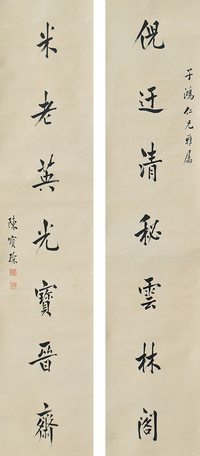 子鴻仁兄雅屬
倪迂清秘雲林閣
米老英光寶晉齋
陳寶琛